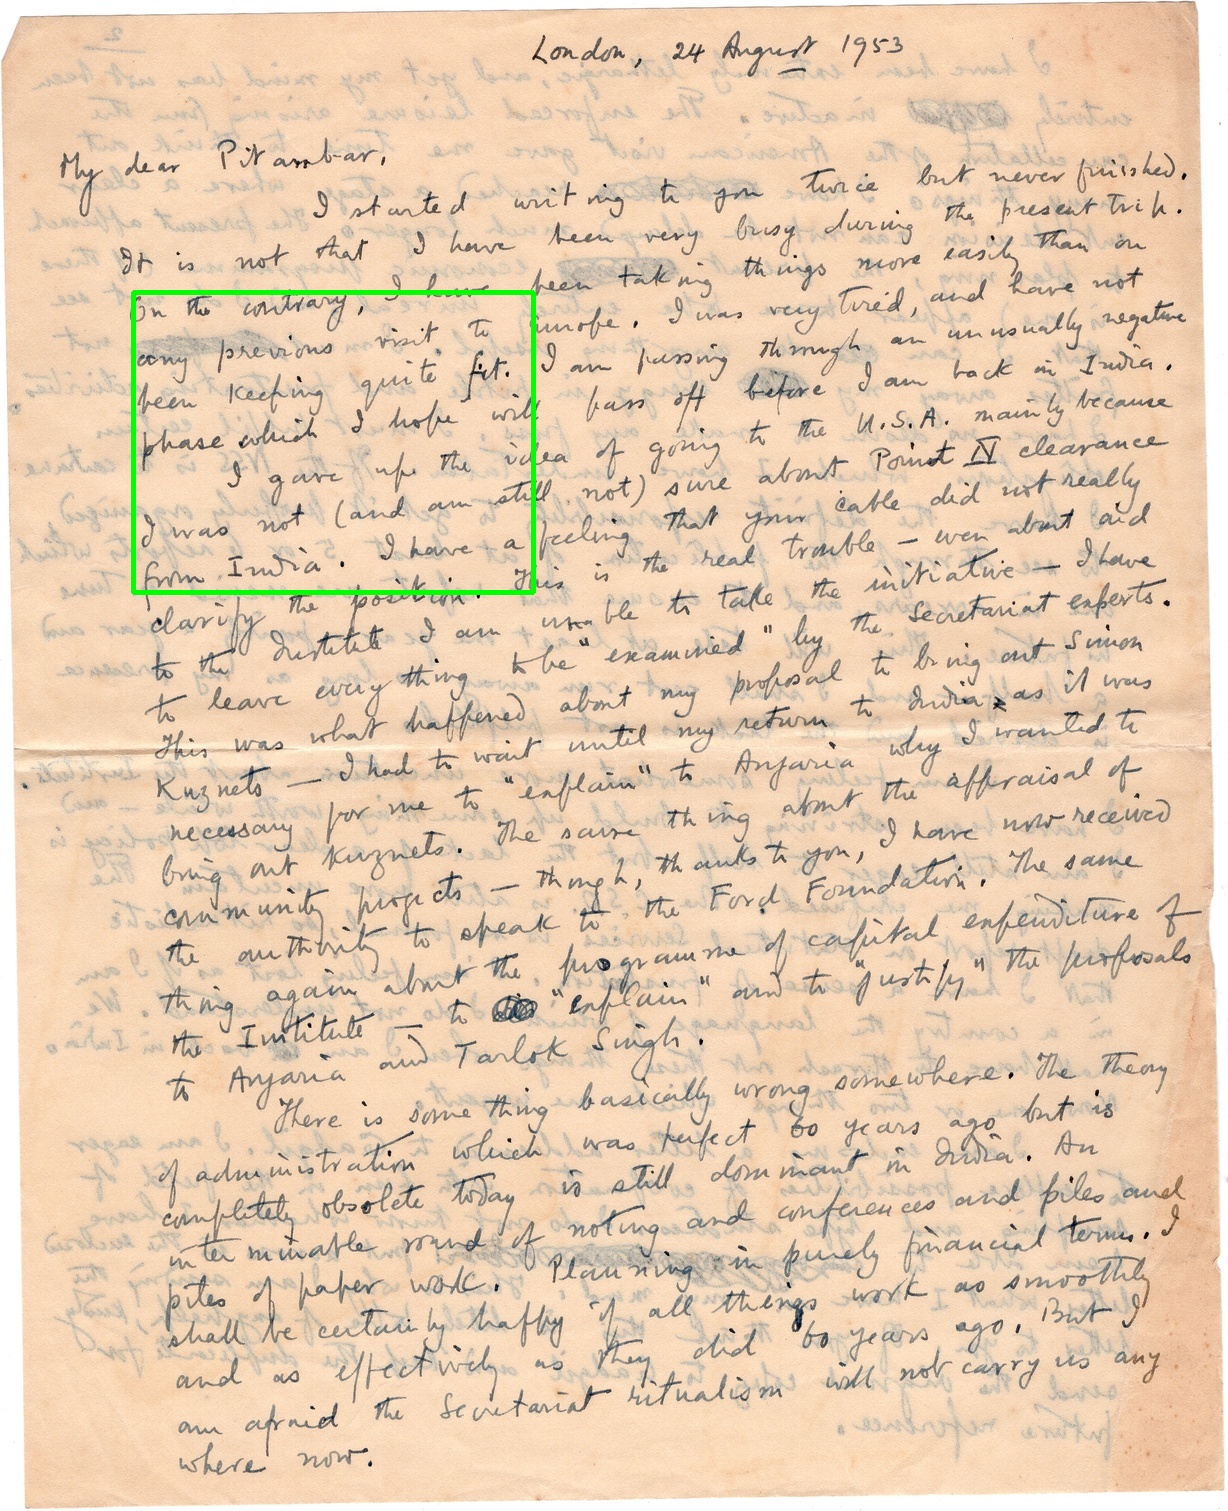 London, 24 August 1953
My dear Pitambar,
I started writing to you twice but never finished.
It is not that I have been very busy during the present trip.
On the contrary, I have been taking things more easily than on
any previous visit to Europe. I was very tired, and have not
been keeping quite fit. I am passing through an unusually negative
phase which I hope will pass off before I am back in India.
I gave up the idea of going to the U.S.A. mainly because
I was not (and am still not) sure about Point IV clearance
from India. I have a feeling that your cable did not really
clarify the position. This is the real trouble – even about aid
to the Institute I am unable to take the initiative – I have
to leave every thing to be "examined" by the Secretariat experts.
This was what happened about my proposal to bring out Simon
Kuznets – I had to wait until my return to India, as it was
necessary for me to "explain" to Anjaria why I wanted to
bring out Kuznets. The same thing about the appraisal of
community projects – though, thanks to you, I have now received
the authority to speak to the Ford Foundation. The same
thing again about the programme of capital expenditure of
the Institute – to "explain" and to "justify" the proposals
to Anjaria and Tarlok Singh.
There is some thing basically wrong somewhere. The theory
of administration which was perfect 60 years ago but is
completely obsolete today is still dominant in India. An
interminable round of noting and conferences and piles and
piles of paper work. Planning in purely financial terms. I
shall be certainly happy if all things work as smoothly
and as effectively as they did 60 years ago. But I
am afraid the Secretariat ritualism will not carry us any
where now.